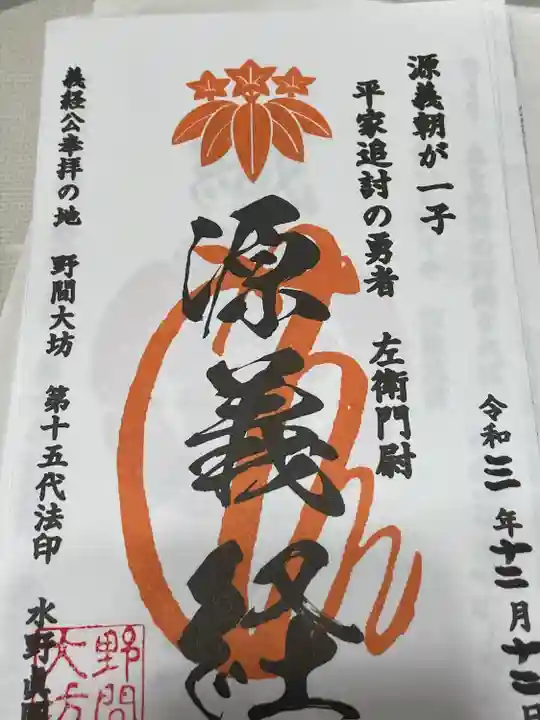 源義朝が一子
平家追討の勇者 左衛門尉
令和三年十二月十二日
源義経
義経公奉拝の地 野間大坊 第十五代法印 水野真
野間
大坊